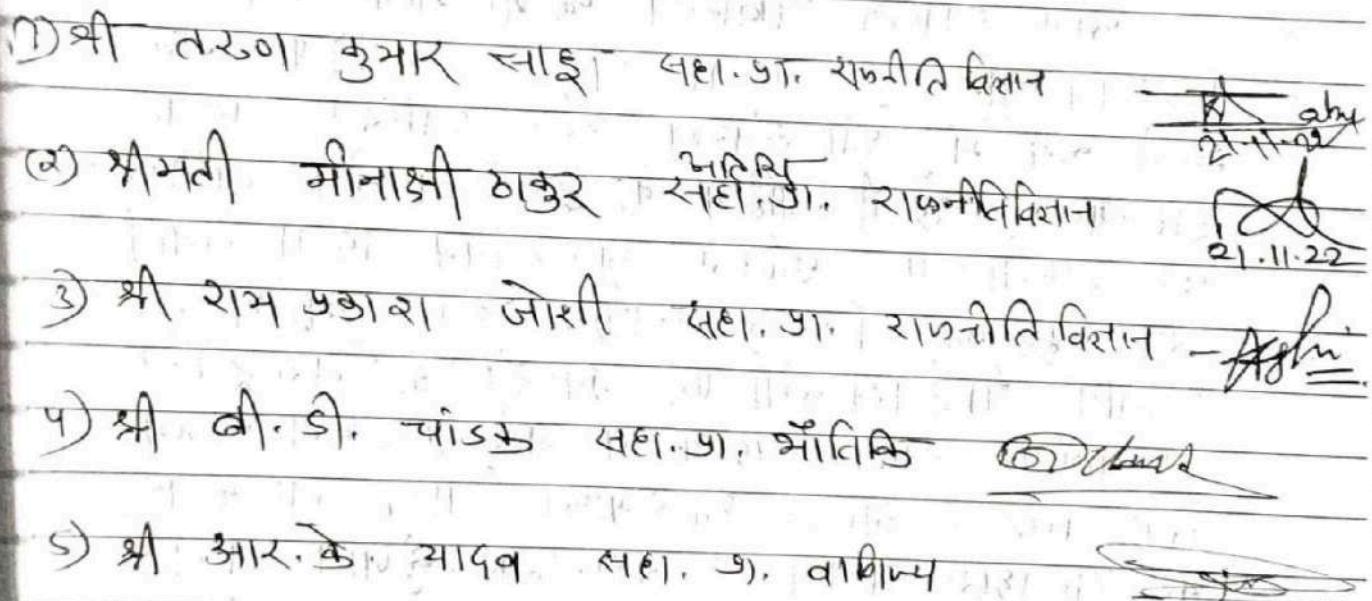 1) श्री तरुण कुमार साहू सहा. प्रा. राजनीति विज्ञान
21.11.22
(2) श्रीमती मीनाक्षी ठाकुर अतिथि सहा. प्रा. राजनीति विज्ञान
21.11.22
3) श्री राम प्रकाश जोशी सहा. प्रा. राजनीति विज्ञान -
4) श्री बी. डी. चांडक सहा. प्रा. भौतिकि
5) श्री आर. के. यादव सहा. प्रा. वाणिज्य